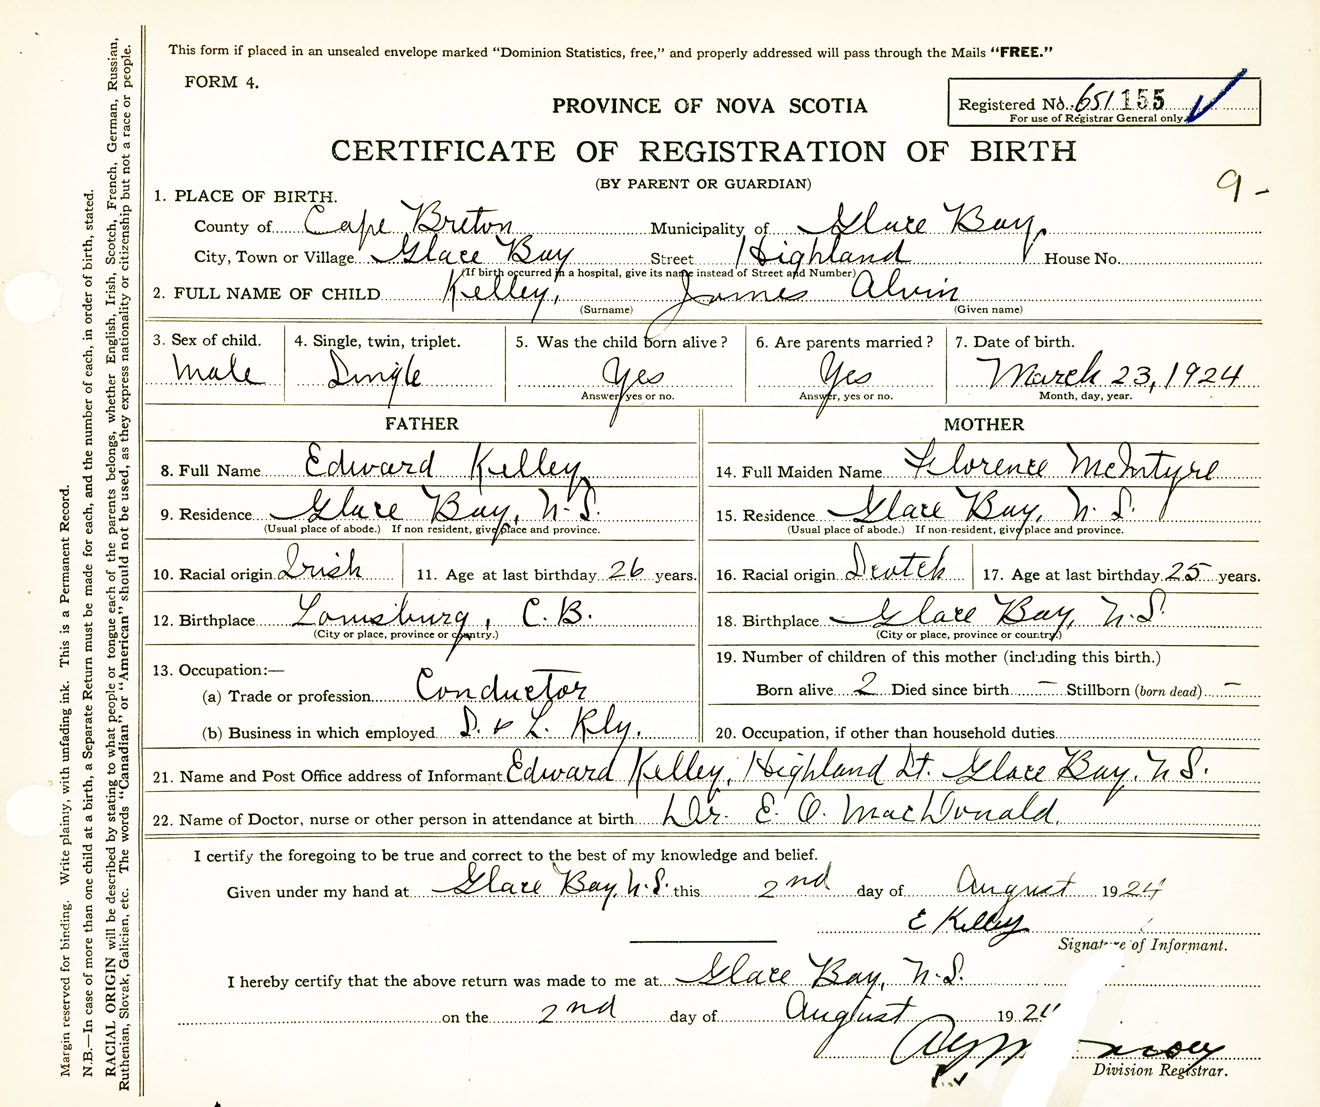 This form if placed in an unsealed envelope marked "Dominion Statistics, free," and properly addressed will pass through the Mails "FREE."
FORM 4.
Registered No. 651155
For use of Registrar General only.
PROVINCE OF NOVA SCOTIA
CERTIFICATE OF REGISTRATION OF BIRTH
(BY PARENT OR GUARDIAN)
9-
1. PLACE OF BIRTH.
County of Cape Breton Municipality of Glace Bay
City, Town or Village Glace Bay Street Highland House No.
(If birth occurred in a hospital, give its name instead of Street and Number)
2. FULL NAME OF CHILD Kelley, James Alvin
(Surname) (Given name)
3. Sex of child. 4. Single, twin, triplet. 5. Was the child born alive? 6. Are parents married? 7. Date of birth.
Male Single Yes Yes March 23, 1924
Answer yes or no. Answer, yes or no. Month, day, year.
FATHER MOTHER
8. Full Name Edward Kelley 14. Full Maiden Name Florence McIntyre
9. Residence Glace Bay, N.S. 15. Residence Glace Bay, N.S.
(Usual place of abode.) If non resident, give place and province. (Usual place of abode.) If non-resident, give place and province.
10. Racial origin Irish 11. Age at last birthday 26 years. 16. Racial origin Scotch 17. Age at last birthday 25 years.
12. Birthplace Louisburg, C.B. 18. Birthplace Glace Bay, N.S.
(City or place, province or country.) (City or place, province or country.)
13. Occupation:— 19. Number of children of this mother (including this birth.)
(a) Trade or profession Conductor Born alive 2 Died since birth — Stillborn (born dead) —
(b) Business in which employed S. & L. Rly. 20. Occupation, if other than household duties
21. Name and Post Office address of Informant Edward Kelley, Highland St. Glace Bay, N.S.
22. Name of Doctor, nurse or other person in attendance at birth Dr. E. O. MacDonald.
I certify the foregoing to be true and correct to the best of my knowledge and belief.
Given under my hand at Glace Bay, N.S. this 2nd day of August 1924
E Kelley
Signature of Informant.
I hereby certify that the above return was made to me at Glace Bay, N.S.
on the 2nd day of August 1924
Division Registrar.
Margin reserved for binding. Write plainty, with unfading ink. This is a Permanent Record.
N.B.—In case of more than one child at a birth, a Separate Return must be made for each, and the number of each, in order of birth, stated.
RACIAL ORIGIN will be described by stating to what people or tongue each of the parents belongs, whether English, Irish, Scotch, French, German, Russian,
Ruthenian, Slovak, Galician, etc. The words "Canadian" or "American" should not be used, as they express nationality or citizenship but not a race or people.